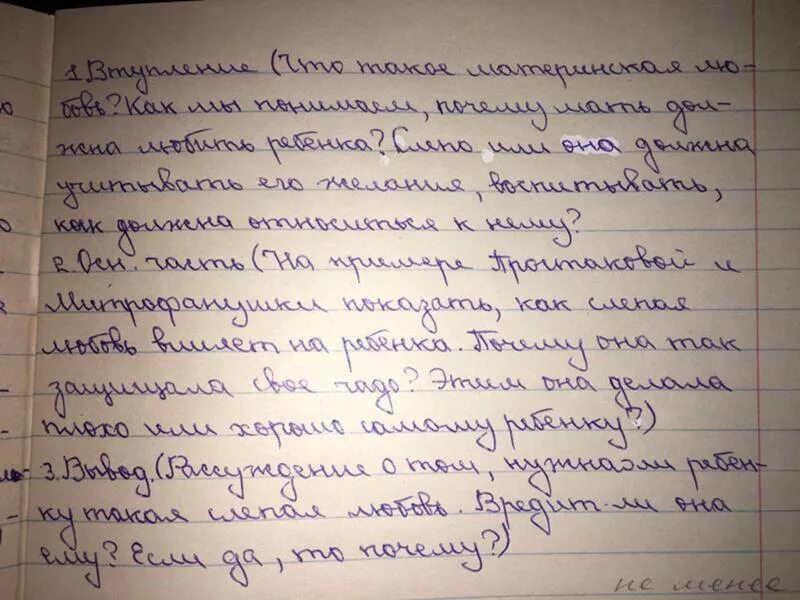 1. Втупление (Что такое материнская лю-
бовь? Как мы понимаем, почему мать дол-
жна любить ребёнка? Слепо или она должна
учитывать его желания, воспитывать,
как должна относиться к нему?
2. Осн. часть (На примере Простаковой и
Митрофанушки показать, как слепая
любовь влияет на ребёнка. Почему она так
защищала своё чадо? Этим она делала
плохо или хорошо самому ребёнку?)
3. Вывод. (Рассуждение о том, нужна ли ребён-
ку такая слепая любовь. Вредит ли она
ему? Если да, то почему?)
не менее